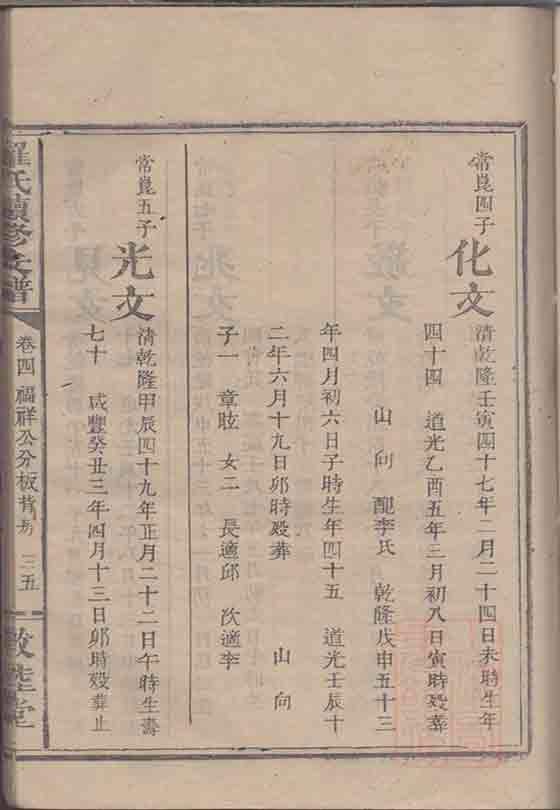 常崑四子
化文
清乾隆壬寅四十七年二月二十四日未時生年
四十四　道光乙酉五年三月初八日寅時殁葬
山向　配李氏　乾隆戊申五十三
年四月初六日子時生年四十五　道光壬辰十
二年六月十九日卯時殁葬　山向
子一　章眩　女二　長適邱　次適李
常崑五子
光文
清乾隆甲辰四十九年正月二十二日午時生壽
七十　咸豐癸丑三年四月十三日卯時殁葬止
羅氏續修支譜
卷四　福祥公分板背房　三五
敦睦堂